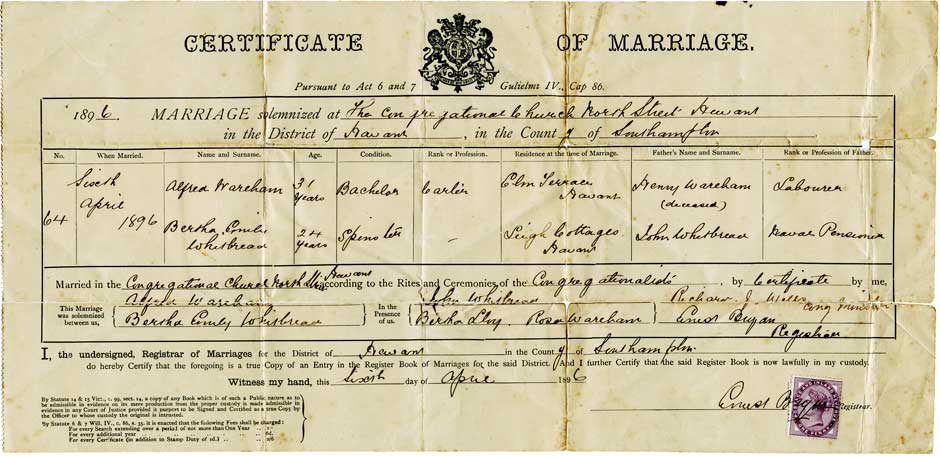 CERTIFICATE OF MARRIAGE.
Pursuant to Act 6 and 7 Gulielmi IV., Cap 86.
1896. MARRIAGE solemnized at The Congregational Church North Street Havant
in the District of Havant, in the County of Southampton
No. When Married. Name and Surname. Age. Condition. Rank or Profession. Residence at the time of Marriage. Father's Name and Surname. Rank or Profession of Father.
64 Sixth April 1896
Alfred Wareham 31 years Bachelor Carter Elm Terrace Havant Henry Wareham (deceased) Labourer
Bertha Emily Whitbread 24 years Spinster – Leigh Cottages Havant John Whitbread Naval Pensioner
Married in the Congregational Church North St. Havant according to the Rites and Ceremonies of the Congregationalists, by Certificate by me,
This Marriage was solemnized between us,
Alfred Wareham
Bertha Emily Whitbread
In the Presence of us,
John Whitbread
Bertha Rosa Wareham
Richard J. Wells Cong Minister
Ernest Bryan
Registrar
I, the undersigned, Registrar of Marriages for the District of Havant in the County of Southampton
do hereby Certify that the foregoing is a true Copy of an Entry in the Register Book of Marriages for the said District. And I further Certify that the said Register Book is now lawfully in my custody.
Witness my hand, this Sixth day of April 1896
Ernest Bryan Registrar.
By Statute 14 & 15 Vict., c. 99, sect. 14, a copy of any Book which is of such a Public nature as to
be admissible in evidence on its mere production from the proper custody is made admissible
in evidence in any Court of Justice provided it purport to be Signed and Certified as a true Copy by
the Officer to whose custody the original is intrusted.
By Statute 6 & 7 Will. IV., c. 86, s. 35, it is enacted that the following Fees shall be charged:
For every Search extending over a period of not more than One Year
For every additional year
For every Certificate (in addition to Stamp Duty of 1d.) 2/6